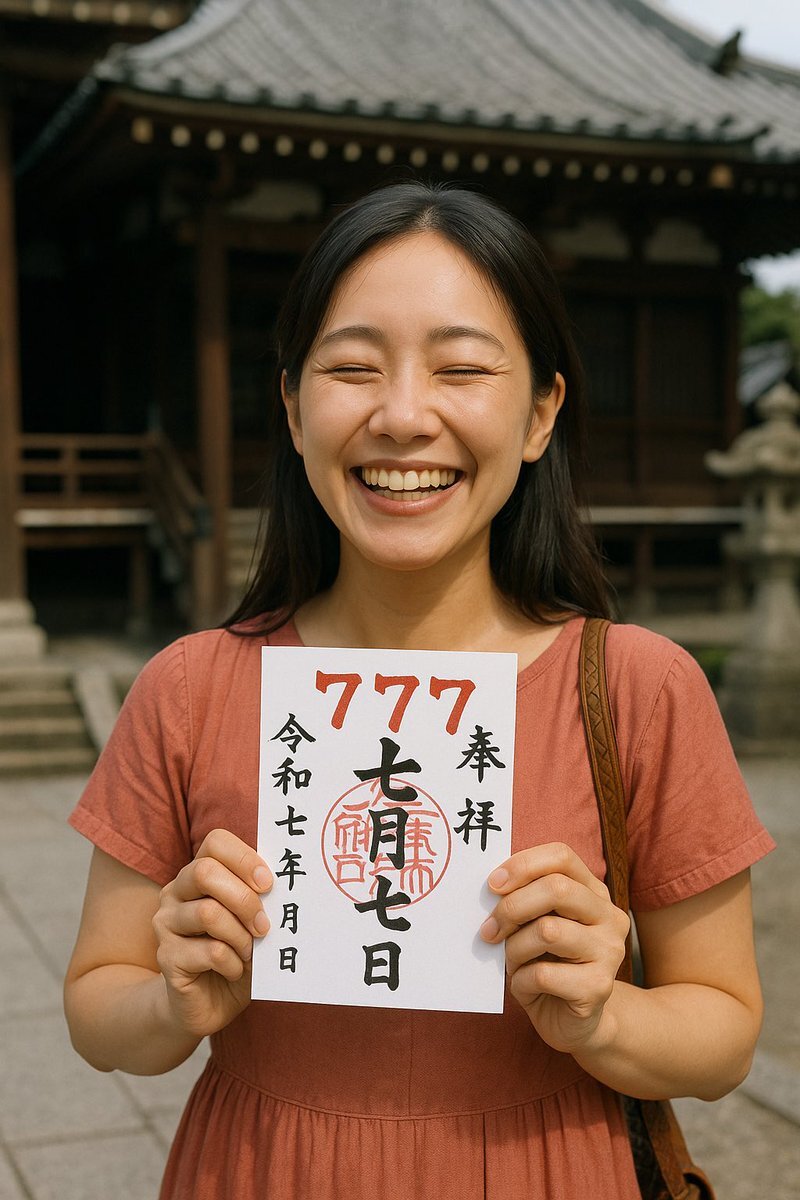 777
奉拝
七月七日
令和七年月日